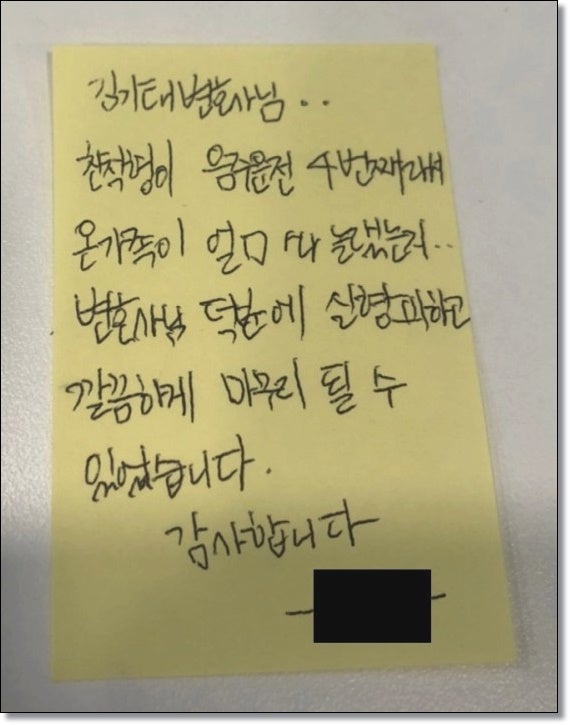 김기태변호사님..
친작명이 음주운전 4번째래서
온가족이 얼마나 놀랬는지..
변호사님 덕분에 실형피하고
깔끔하게 마무리 될 수
있었습니다.
감사합니다